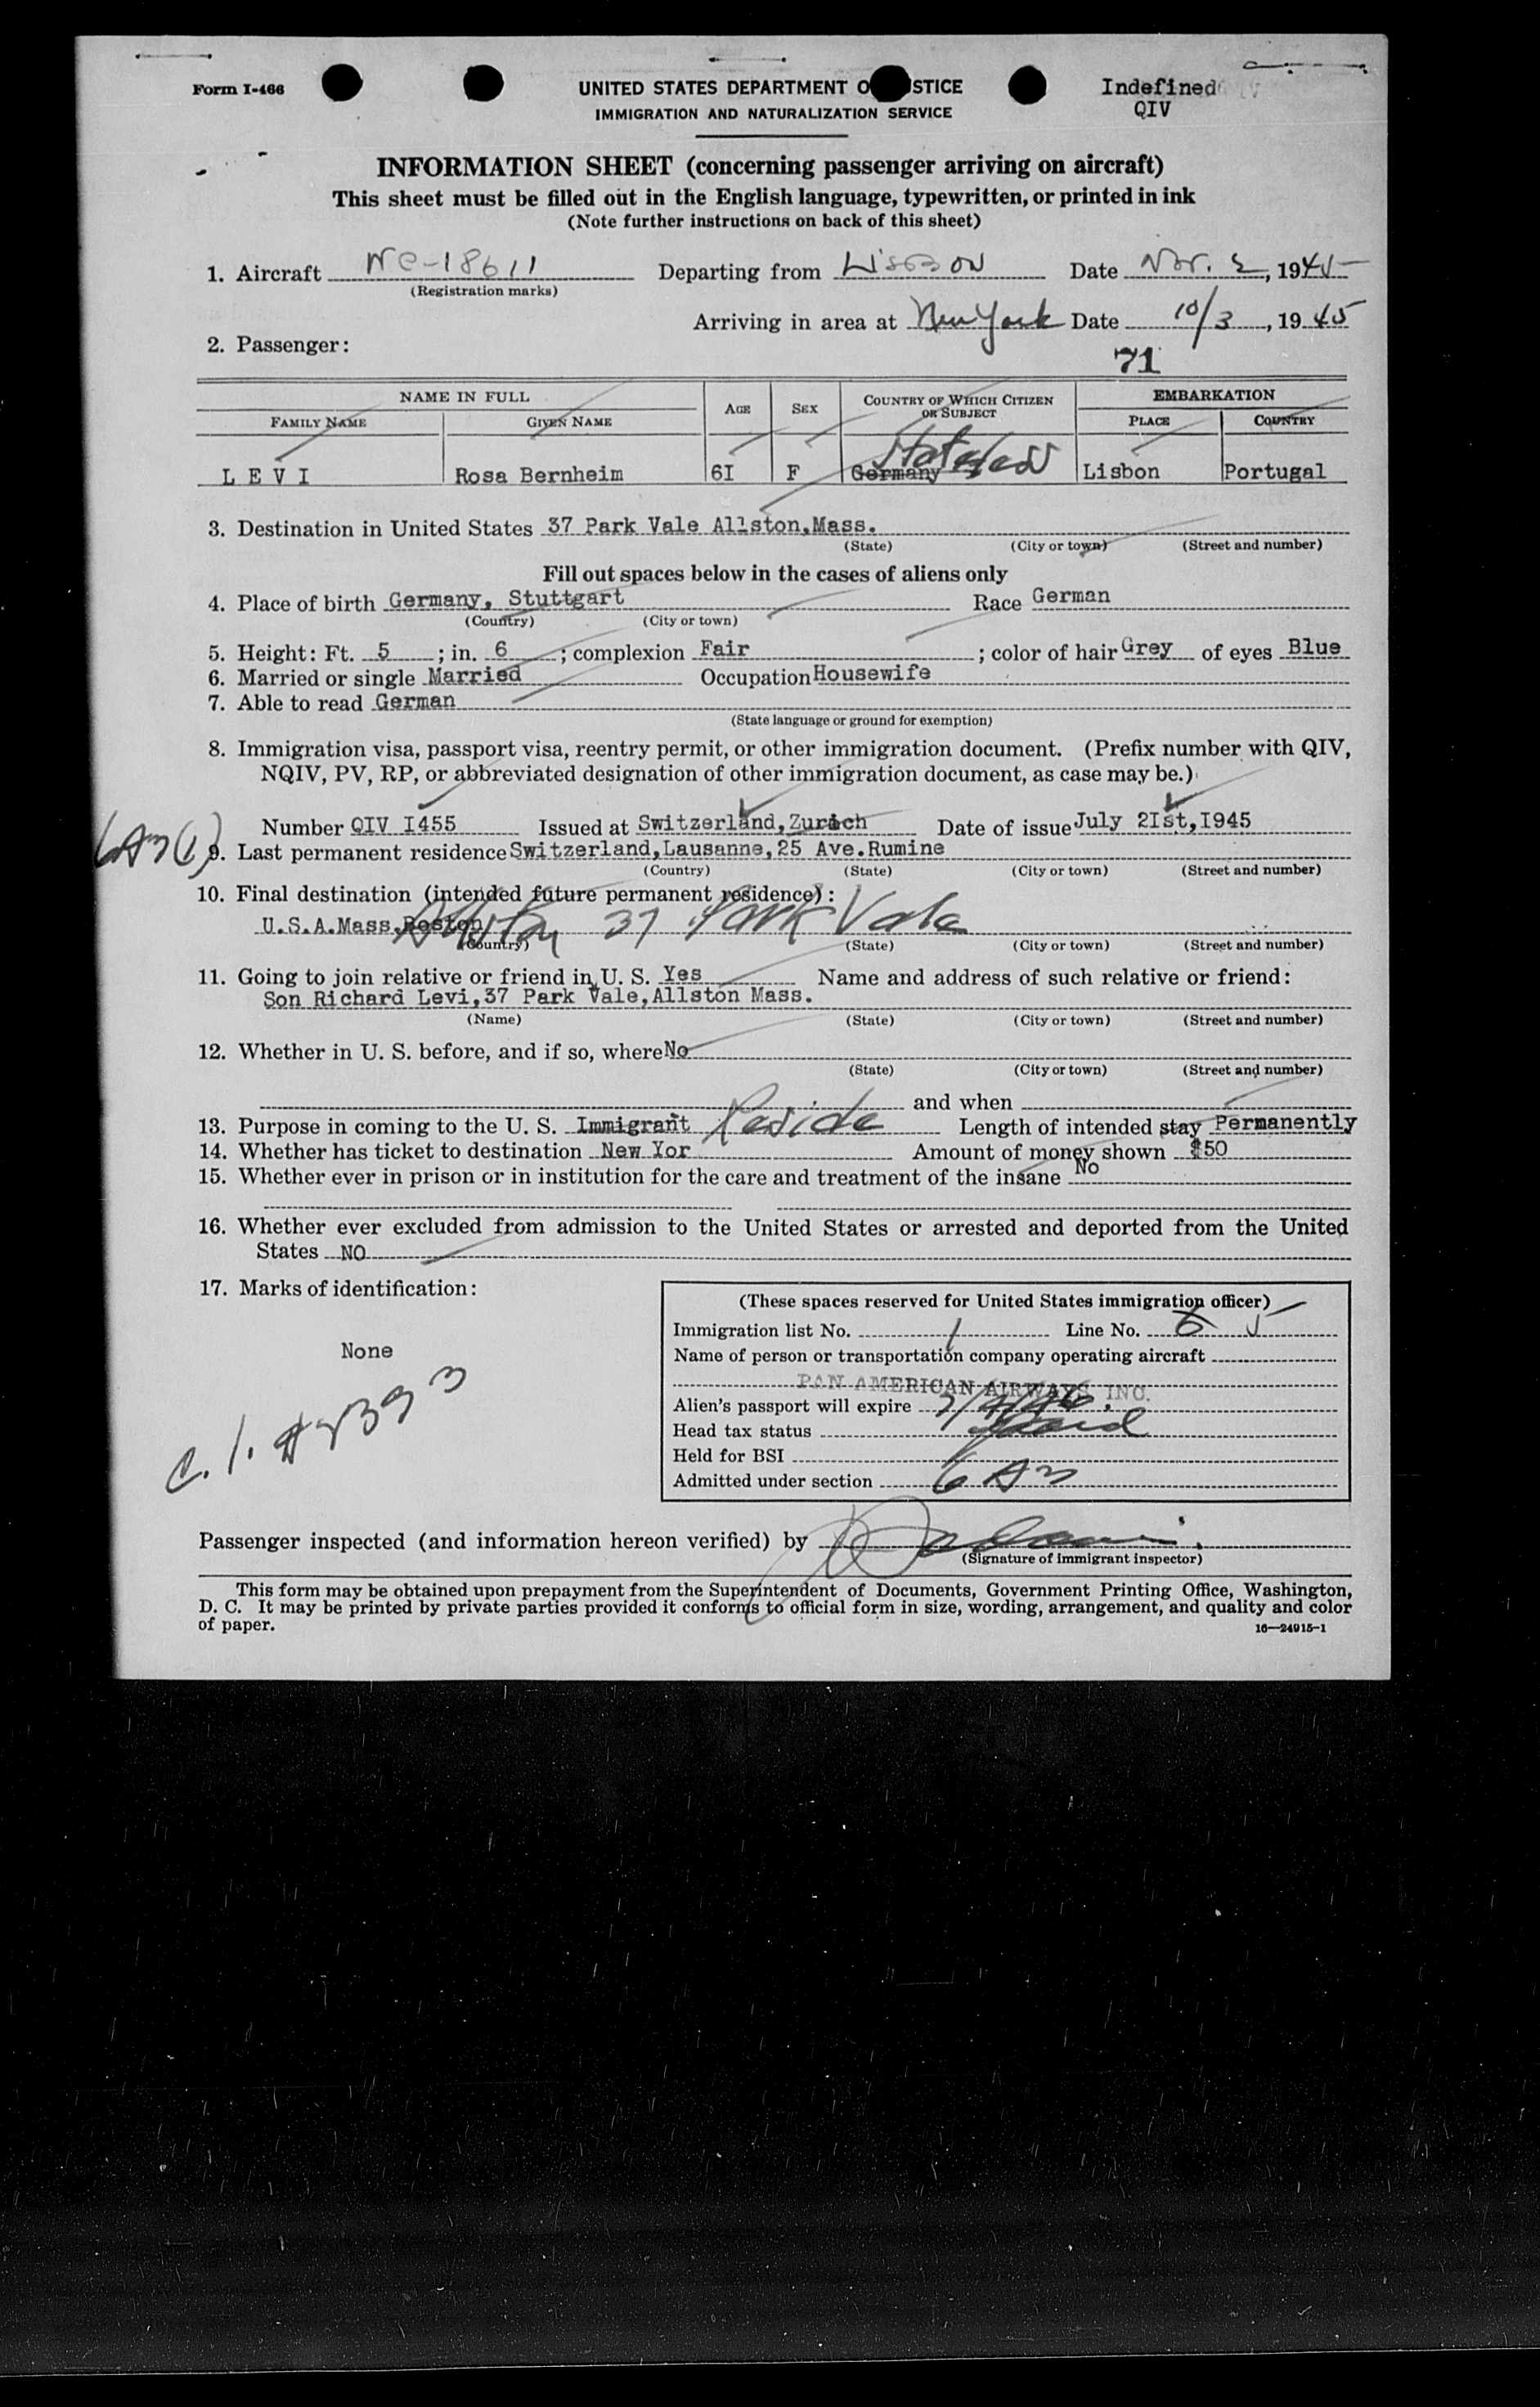 Form I-466
UNITED STATES DEPARTMENT O STICE
Indefined
IMMIGRATION AND NATURALIZATION SERVICE
QIV
INFORMATION SHEET (concerning passenger arriving on aircraft)
This sheet must be filled out in the English language, typewritten, or printed in ink
(Note further instructions on back of this sheet)
1. Aircraft NC-18611 Departing from Lisbon Date Nov. 2, 1945
(Registration marks)
Arriving in area at New York Date 10/3, 1945
2. Passenger:
71
NAME IN FULL AGE SEX COUNTRY OF WHICH CITIZEN OR SUBJECT EMBARKATION
FAMILY NAME GIVEN NAME PLACE COUNTRY
Stateless
LEVI Rosa Bernheim 6I F Germany Lisbon Portugal
3. Destination in United States 37 Park Vale Allston,Mass.
(State) (City or town) (Street and number)
Fill out spaces below in the cases of aliens only
4. Place of birth Germany, Stuttgart Race German
(Country) (City or town)
5. Height: Ft. 5 ; in. 6 ; complexion Fair ; color of hair Grey of eyes Blue
6. Married or single Married Occupation Housewife
7. Able to read German
(State language or ground for exemption)
8. Immigration visa, passport visa, reentry permit, or other immigration document. (Prefix number with QIV,
NQIV, PV, RP, or abbreviated designation of other immigration document, as case may be.)
Number QIV I455 Issued at Switzerland,Zurich Date of issue July 2Ist,I945
6A3(1)
9. Last permanent residence Switzerland,Lausanne,25 Ave.Rumine
(Country) (State) (City or town) (Street and number)
10. Final destination (intended future permanent residence):
U.S.A.Mass.Boston Allston 37 Park Vale
(Country) (State) (City or town) (Street and number)
11. Going to join relative or friend in U. S. Yes Name and address of such relative or friend:
Son Richard Levi,37 Park Vale,Allston Mass.
(Name) (State) (City or town) (Street and number)
12. Whether in U. S. before, and if so, where No
(State) (City or town) (Street and number)
and when
13. Purpose in coming to the U. S. Immigrant Reside Length of intended stay Permanently
14. Whether has ticket to destination New Yor Amount of money shown $50
15. Whether ever in prison or in institution for the care and treatment of the insane No
16. Whether ever excluded from admission to the United States or arrested and deported from the United
States NO
17. Marks of identification:
None
C.I. #8393
(These spaces reserved for United States immigration officer)
Immigration list No. 1 Line No. 6 5
Name of person or transportation company operating aircraft
PAN AMERICAN AIRWAYS, INC.
Alien's passport will expire
Head tax status
Held for BSI
Admitted under section 6A3
Passenger inspected (and information hereon verified) by
(Signature of immigrant inspector)
This form may be obtained upon prepayment from the Superintendent of Documents, Government Printing Office, Washington,
D. C. It may be printed by private parties provided it conforms to official form in size, wording, arrangement, and quality and color
of paper.
16—24915-1